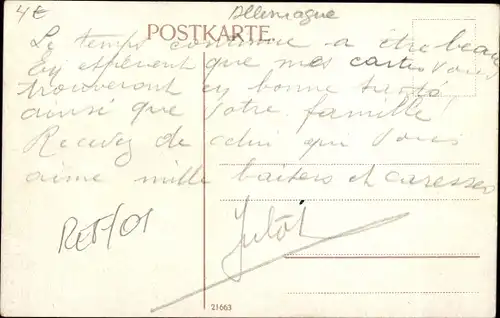 4€ Allemagne
POSTKARTE
Le temps continue a être beau
En espérent que mes cartes vous
trouveront en bonne santé
ainsi que votre famille
Recevez de celui qui vous
aime mille baisers et caresses
21663